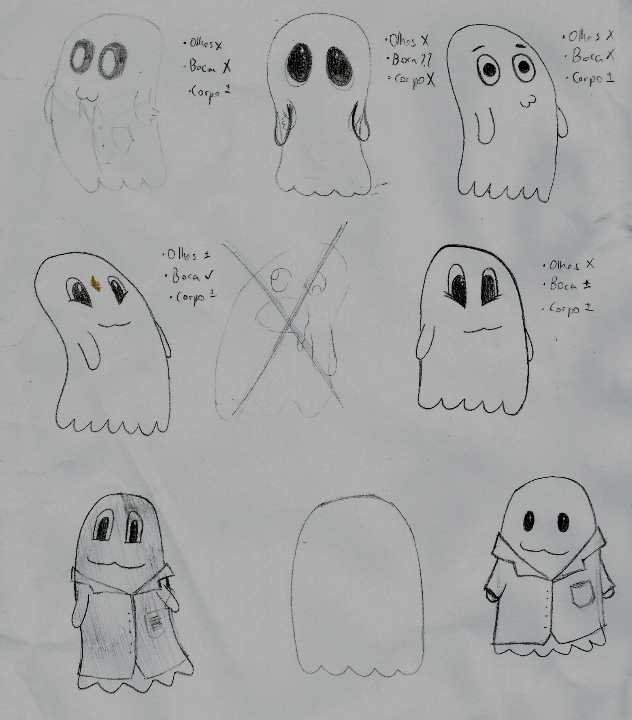 • Olhos x
• Boca X
• Corpo ±
• Olhos X
• Boca ??
• Corpo X
• Olhos X
• Boca X
• Corpo ±
• Olhos ±
• Boca ✓
• Corpo ±
• Olhos X
• Boca ±
• Corpo ±